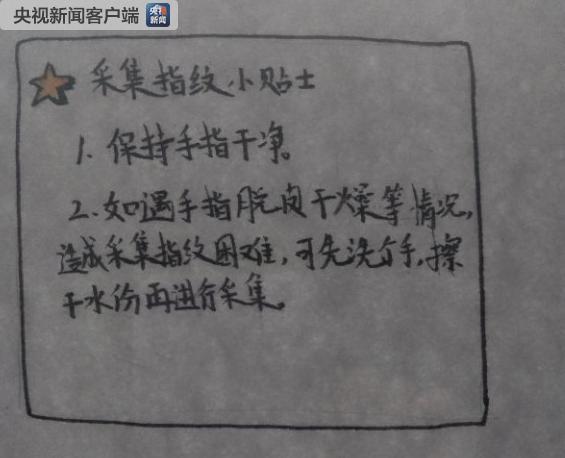 央视新闻客户端
央视
新闻
采集指纹小贴士
1. 保持手指干净。
2. 如遇手指脱皮干燥等情况,
造成采集指纹困难,可先洗个手,擦
干水份再进行采集。